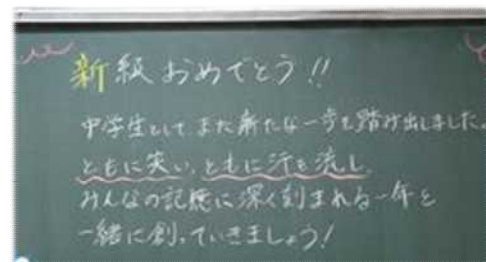 新級おめでとう!!
中学生として また新たな一歩を踏み出しました。
ともに笑い、ともに汗を流し、
みんなの記憶に深く刻まれる一年を
一緒に創っていきましょう!